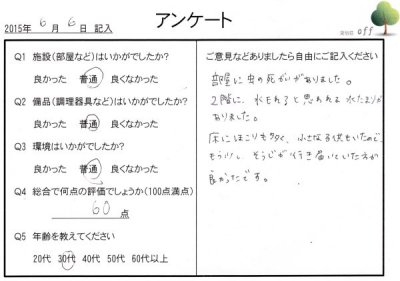 アンケート
2015年 6月 6日 記入
off
Q1 施設(部屋など)はいかがでしたか?
良かった 普通 良くなかった
Q2 備品(調理器具など)はいかがでしたか?
良かった 普通 良くなかった
Q3 環境はいかがでしたか?
良かった 普通 良くなかった
Q4 総合で何点の評価でしょうか(100点満点)
60 点
Q5 年齢を教えてください
20代 30代 40代 50代 60代以上
ご意見などありましたら自由にご記入ください
部屋に虫の死がいがありました。
2階に、水もれと思われる水たまりが
ありました。
床にほこりも多く、小さな子供もいたので
もう少し、そうじが行き届いていた方が
良かったです。